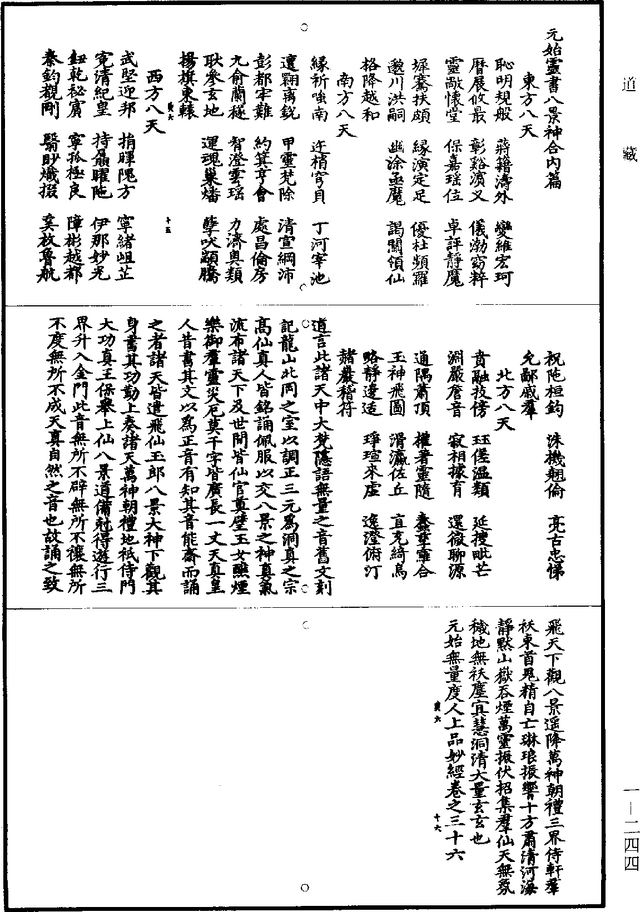 元始靈書八景神合內篇
東方八天
恥明規般 蔣籍濤外 變維宏珂
曆展攸最 彰谿濱义 儀渤窈粹
靈敞懷堂 保嘉瑶位 卓評靜魔
墀騫扶頗 緣演定足 優杜頻羅
邀川洪嗣 幽涂亟魔 謁闕領仙
格降越和
南方八天
緣祈喹南 迕梢穹貝 丁河宰池
遺翾 銳 甲靈梵除 清宣綱沛
彭都牢難 約箕亨會 處昌倫房
九俞蘭檖 智澄雲瑶 力濟奥類
耿參玄地 運魂巢燔 孽吠顓騰
揚旗東轅
西方八天
武堅迎邦 捐暉隗方 寧緒岨芷
寃清紀皇 持聶曜陁 伊那妙光
鈕乾祕賓 寧孤極良 障彬越都
秦鈞觀剛 翳眇熾掇 奚放魯航
祝陁桓鈞 洙機翹倫 亮古忠悌
允鄙戚羣
北方八天
賁融技傍 珏偓温類 延搜毗芒
淵嚴詹音 寂相據育 還微聊源
通隅肅頂 權著靈隨 靈合
玉神飛圖 滑瀛佐丘 宜克綺鳥
略靜邊造 琤瑄來虚 遶澄俯汀
赭巖稻符
道言此諸天中大梵隱語無量之音舊文刻
記龍山北罔之室以調正三元爲洞真之宗
高仙真人皆銘誦佩服以交八景之神真氣
流布諸天下及世間皆仙官真壁玉女醮煙
樂御羣靈災厄莫干字皆廣長一丈天真皇
人昔書其文以爲正音有知其音能齋而誦
之者諸天皆遣飛仙玉郎八景大神下觀其
身書其功勤上奏諸天萬神朝禮地祇侍門
大功真王保舉上仙八景道備剋得遊行三
界升入金門此音無所不辟無所不禳無所
不度無所不成天真自然之音也故誦之致
飛天下觀八景遥降萬神朝禮三界侍軒羣
祅束首鬼精自亡琳琅振響十方肅清河瀑
靜默山嶽吞煙萬靈振伏招集羣仙天無氛
穢地無祅塵冥慧洞清大量玄玄也
元始無量度人上品妙經卷之三十六
道藏
一—二四四